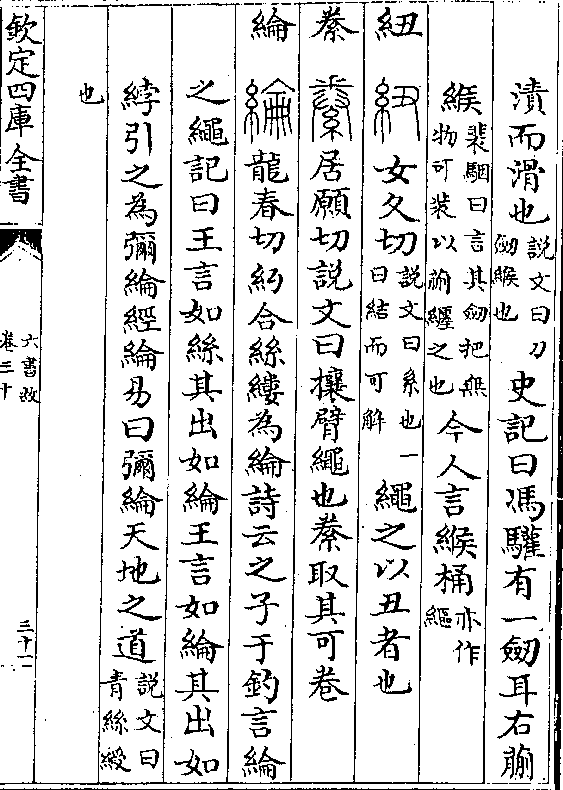 漬而滑也說文曰刀劒緱也史記曰馮驩有一劒耳右蒯
緱裴駰曰言其劒把無物可裝以蒯纒之也今人言緱桶亦作䌔
紐 紐女久切說文曰系也一曰結而可解繩之以丑者也
絭 絭居願切說文曰攘臂繩也絭取其可卷
綸 綸龍春切糾合絲縷為綸詩云之子于釣言綸
之繩記曰王言如絲其出如綸王言如綸其出如
綍引之為彌綸經綸易曰彌綸天地之道說文曰青絲綬
也
欽定四庫全書
六書故
卷三十
三十一